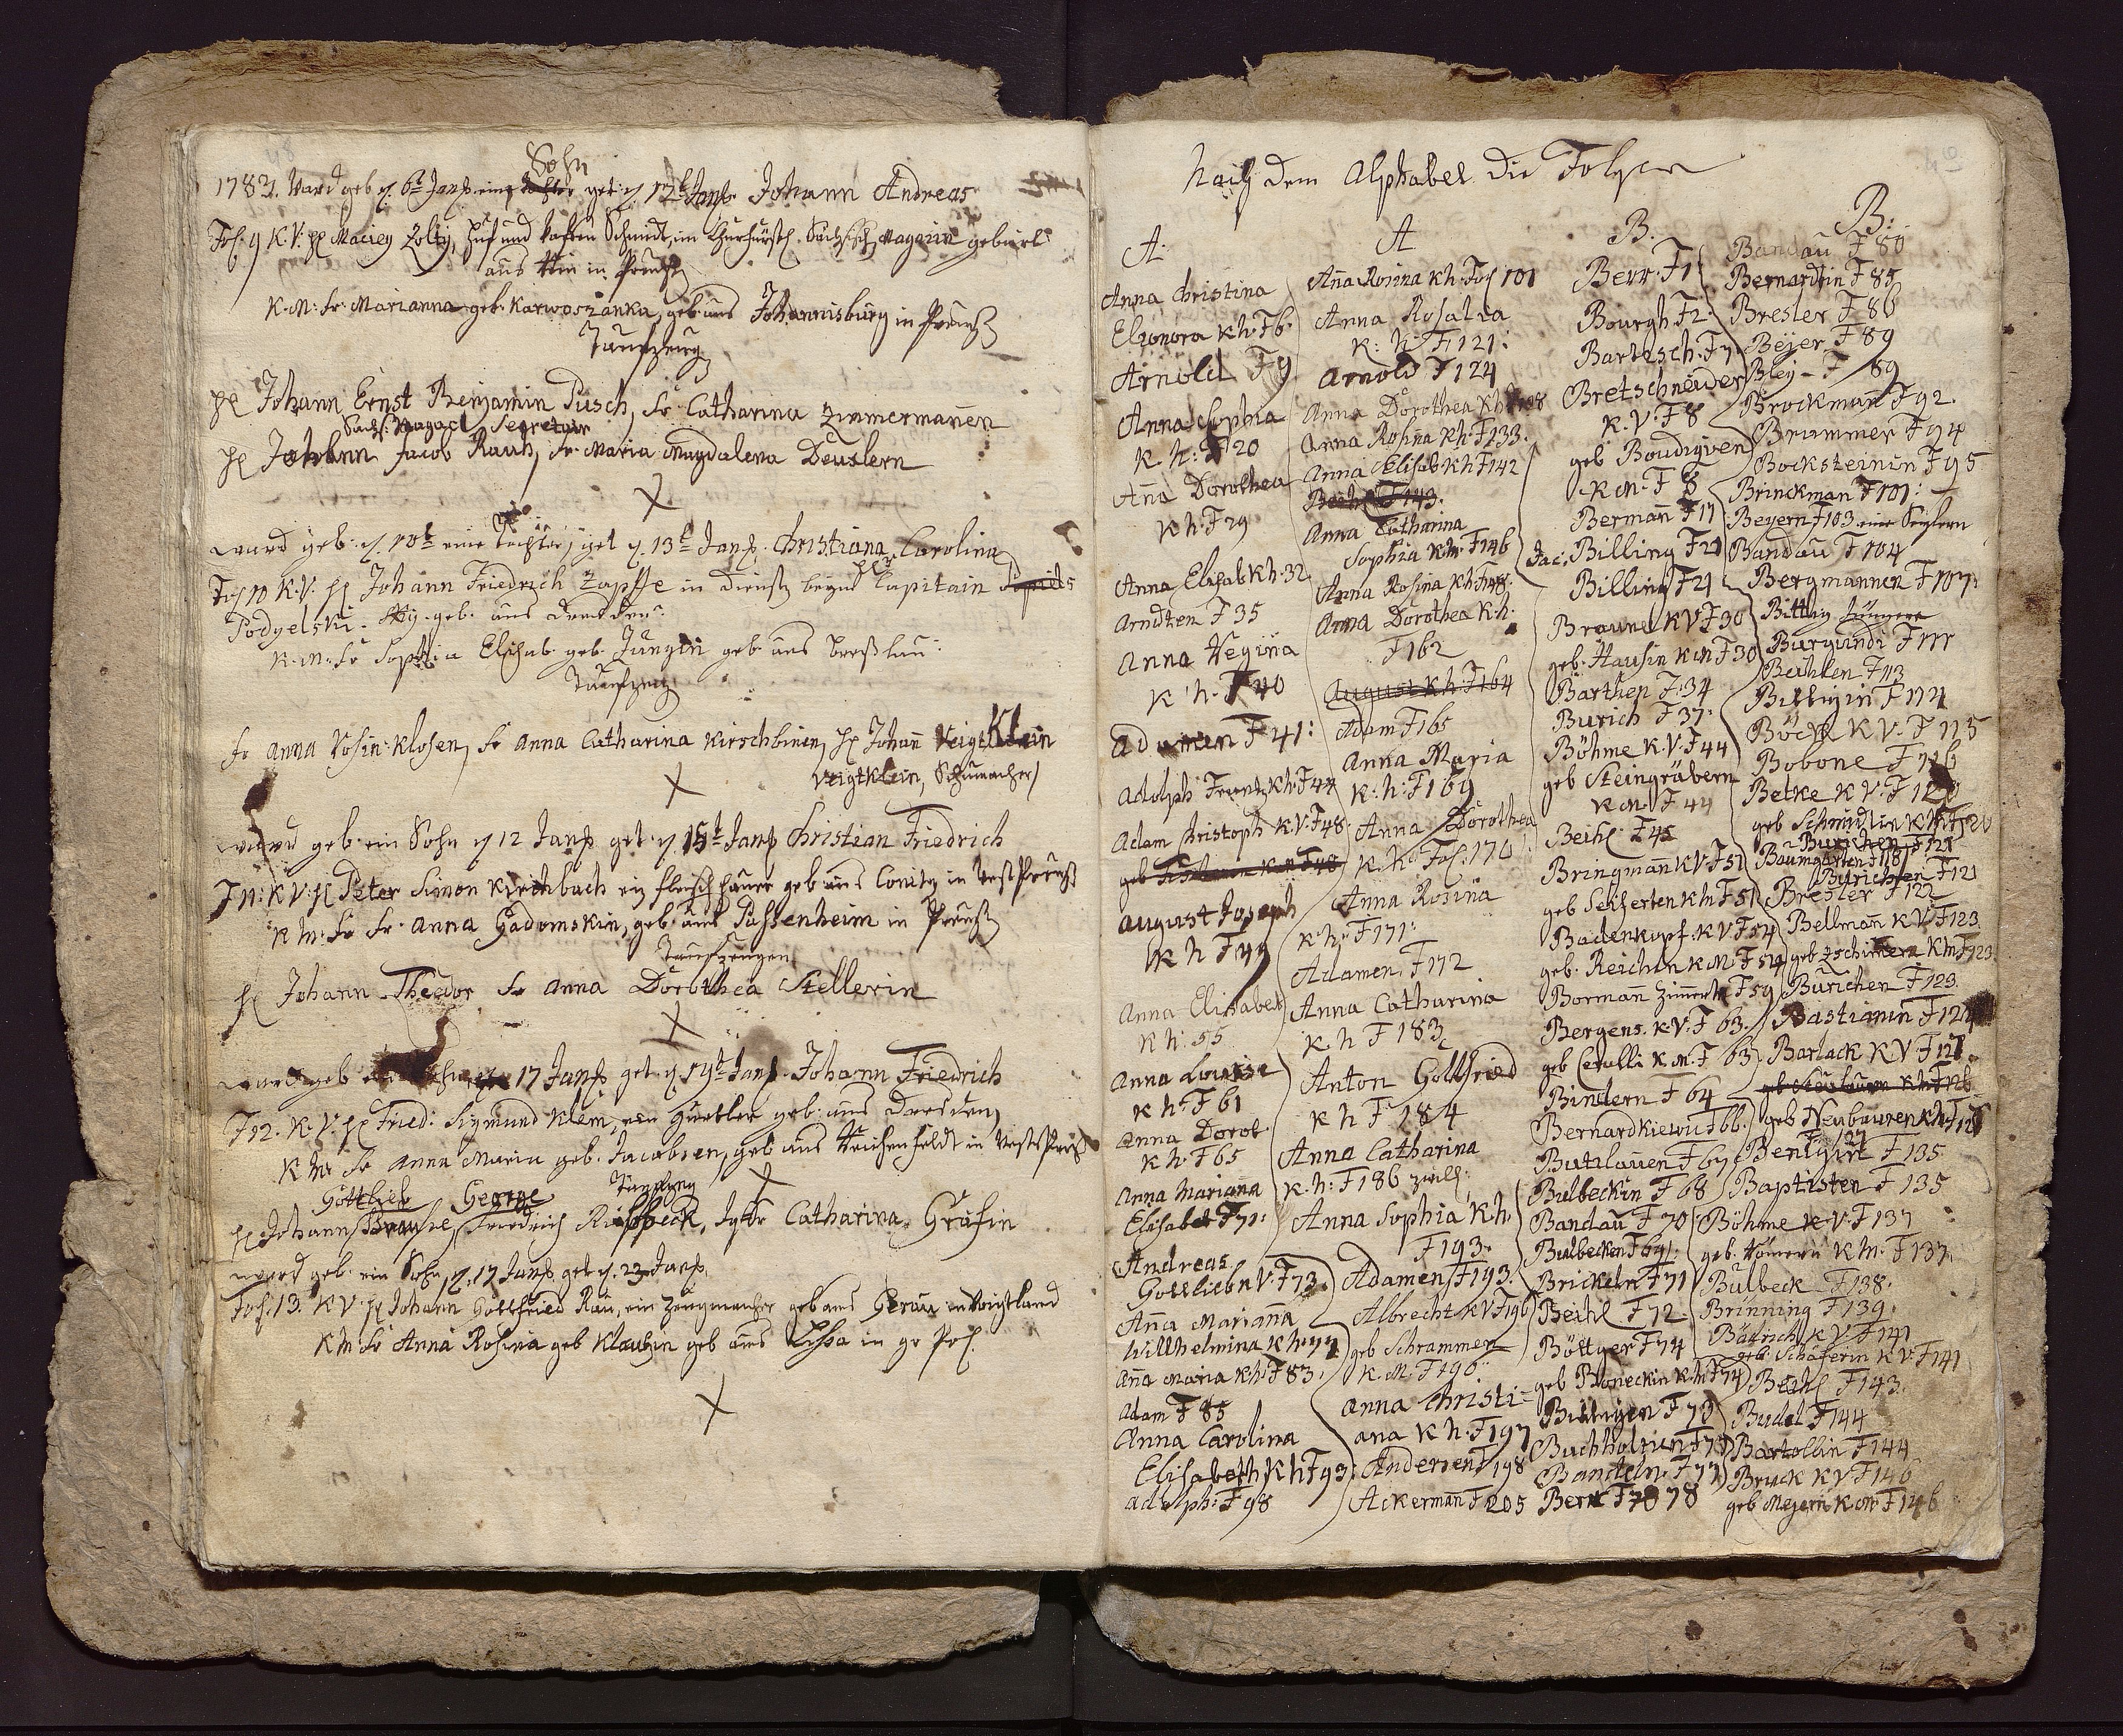 Sohn
1783. Ward geb. d. 6t Janß. eine Tochter get: d. 12t Janß. Johann Andreas
Fol: 9 K.V: H Maciey Zolty, Huf und Waffen Schmidt, im Churfürstl. Sächsisch Magazin gebürt
aus in Preuß
K.M: Fr: Marianna geb: Karwoszanka, geb: aus Johannisburg in Preuß
Taufzeug
H Johann Ernst Benjamin Pusch, Fr Catharina Zimmermanen
Sächs: Magaci Segretair
H Johann Jacob Rauh, Fr Maria Magdalena Deuslern
X
ward geb: d. 10t eine Tochter, get d. 13t Janß. Christiana Carolina
Fol 10 K.V. H Johann Friedrich Zapffe in Diensten beym H Capitain
Podgelski. geb: aus Dresden
K.M: Fr Sophia Elisab geb: Jungin geb aus Breßlau:
Taufzeug
Fr Anna Rosin: Klosen, Fr Anna Catharina Kirschbinen, H Johan Veigtklein
Veigtklein, Schumacher
X
ward geb: ein Sohn d 12 Janß get: d. 15t Janß Christian Friedrich
F 11: K V: H Peter Simon Kirchbach ein Fleischhauer geb aus Conitz in West Preuß
K M: Fr Fr: Anna Gadomskin, geb: aus Passenheim in Preuß
Taufzeugen
H Johann Theedor Fr Anna Dorothea Stellerin
X
ward geb ein Sohn 17 Janß get d. 19t Janß. Johann Friedrich
F 12. K. V: H Fried: Sigmund Klem, ein Gürtler geb: aus Dresden
K M: Fr Anna Maria geb. Jacobsen, geb aus in West Preuß
Gottlieb George Taufzeug X
H Johann Friedrich Ribbeck, Jgfr Catharina Gräfin
ward geb. ein Sohn, d. 17 Janß get d. 23 Janß
Fol: 13. K V: H Johann Gottfried Rau, ein Zeugmacher geb aus Gerau im Voigtland
K M Fr Anna Rosina geb Klautzin geb aus Lissa in gr Pol:
X
Nach dem Alphabet die Folgen
A.
Anna Christina
Elionora K h: F 6.
Arnold F 9
Anna Sophia
K. h: F 20
Aña Dorothea
K h: F 29
Anna Elisab K h: 32
Arndten F 35
Anna Regina
K: h. F 40
Adamen F 41:
Adolph Frantz K h: F 44
Adam Christoph K.V: F 48
August Joseph
K h F 49
Anna Elisabet
K h: 55
Anna Louise
K h: F 61
Anna Dorot.
K h: F 65
Anna Mariana
Elisabet F 71:
Andreas
Gottlieb K V: F 73
Aña Mariaña
Willhelmina K h: 77
Aña Maria K h: F 83.
Adam F 85
Anna Carolina
Elisabeth K h F 93:
Adolph: F 98
A
Aña Rosina K h: Fol 101
Anna Rosalia
K: h: F 121:
Arnold F 124
Anna Dorothea K h F 128
Anna Rosina K h: F 133.
Anna Elisab K h F 142
Beihl F 143.
Anna Catharina
Sophia K h: F 146
Anna Rosina K h: F 148.
Anna Dorothea K. h.
F 162
August K h: F 164
Adam F 165
Anna Maria
K: h: F 169
Anna Dorothea
K. h: Fol: 170
Anna Rosina
K: h: F 171:
Adamen F 172
Anna Catharina
K. h F 183
Anton Gottfried
K h F 184
Anna Catharina
K. h: F 186 zwill:
Anna Sophia K h.
F 193.
Adamen F 193.
Albrecht K V F 196
geb Schrammen
K. M. F 196
Anna Christi=
ana K h: F 197
Andersen F 198
Ackermañ F 205
B.
Berr: F 1
Bourgh F 2:
Bartzsch: F 7
Bretschneider
K. V: F 8
geb Boudigven
K M: F 8
Bermañ F 17
Jac: Billing F 21
Billing F 21
Braune K V F 30
geb: Hausin K M F 30
Barthen F: 34
Burich F 37:
Böhme K. V. F 44
geb Steingräbern
K M: F 44
Beihl: F 45
Bringmañ K V F 51
geb Sekferten K h F 51
Badenkopf: K V F 54
geb: Reichen K M F 54
Bormañ Zimerl: F 59
Bergens. K. V. F 63.
geb Cerulli K. M. F 63
Bindern F 64
Bernardkiewu F 66.
Butzlauen F 67
Bulbeckin F 68
Bandau F 70
Bulbecken F 69:
Brickeln F 71
Beihl F 72
Böttger F 74
geb Boneckin K M F 74
Billigen F 73
Buchholtzin F 75
Bandeln F 77
Berr F 78 78
B:
Bandau F 80
Bernardtin F 85
Bresler F 86
Bejer F 89
Bley - F 89
Brockmañ F 92.
Brummer F 94
Bocksteinin F 95
Brinckman F 101:
Beyern F 103 eine
Bandau F 104
Bergmannen F 107:
Burgundi F 111
Beihlen F 113
Billigin F 114
Böck K V. F 115
Bobone F 116
Betke K V: F 120
geb Schmidtin K M F 120
Burichen F 121
Baumgarten F 118
Burichten F 121
Bresler F 122
Bellmañ K V F 123.
geb Zschimern K M F 123
Burichen F 123.
Bastianin F 124
Barlack K V F 127.
geb Neubauren K M F 127
Bentgin F 135
Baptisten F 135
Böhme K V: F 137
geb: Römern K M: F 137
Bulbeck F 138.
Brinning F 139.
Bäirsch K V F 141
geb. Schäferin K V. F 141
Beihl F 143.
Budel F 144
Bartollin F 144
Bruck K V F 146
geb Mejern K M F 146